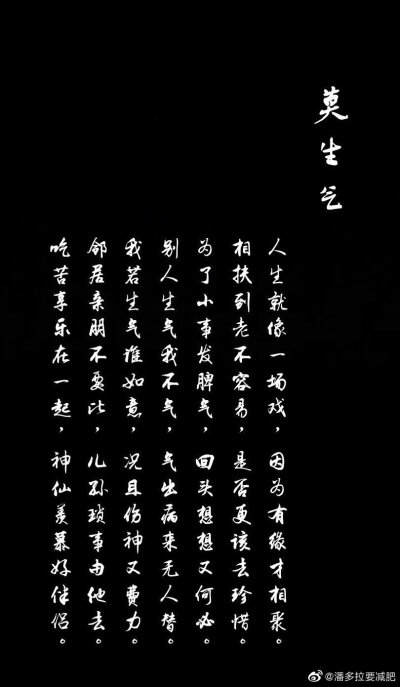 莫生气
人生就像一场戏，因为有缘才相聚。
相扶到老不容易，是否更该去珍惜。
为了小事发脾气，回头想想又何必。
别人生气我不气，气出病来无人替。
我若生气谁如意，况且伤神又费力。
邻居亲朋不要比，儿孙琐事由他去。
吃苦享乐在一起，神仙羡慕好伴侣。
@潘多拉要减肥